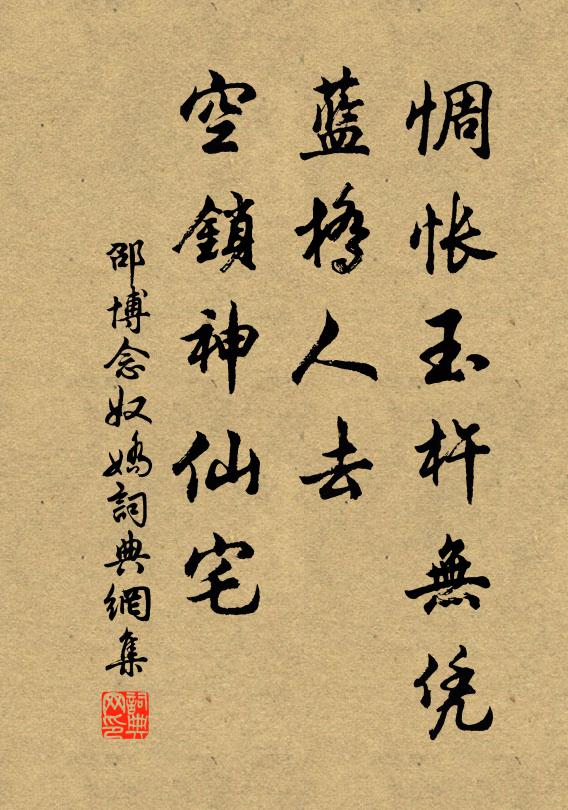 惆怅玉杵無凭
藍橋人去
空鎖神仙宅
邵博念奴嬌詞典網集
詞典网印